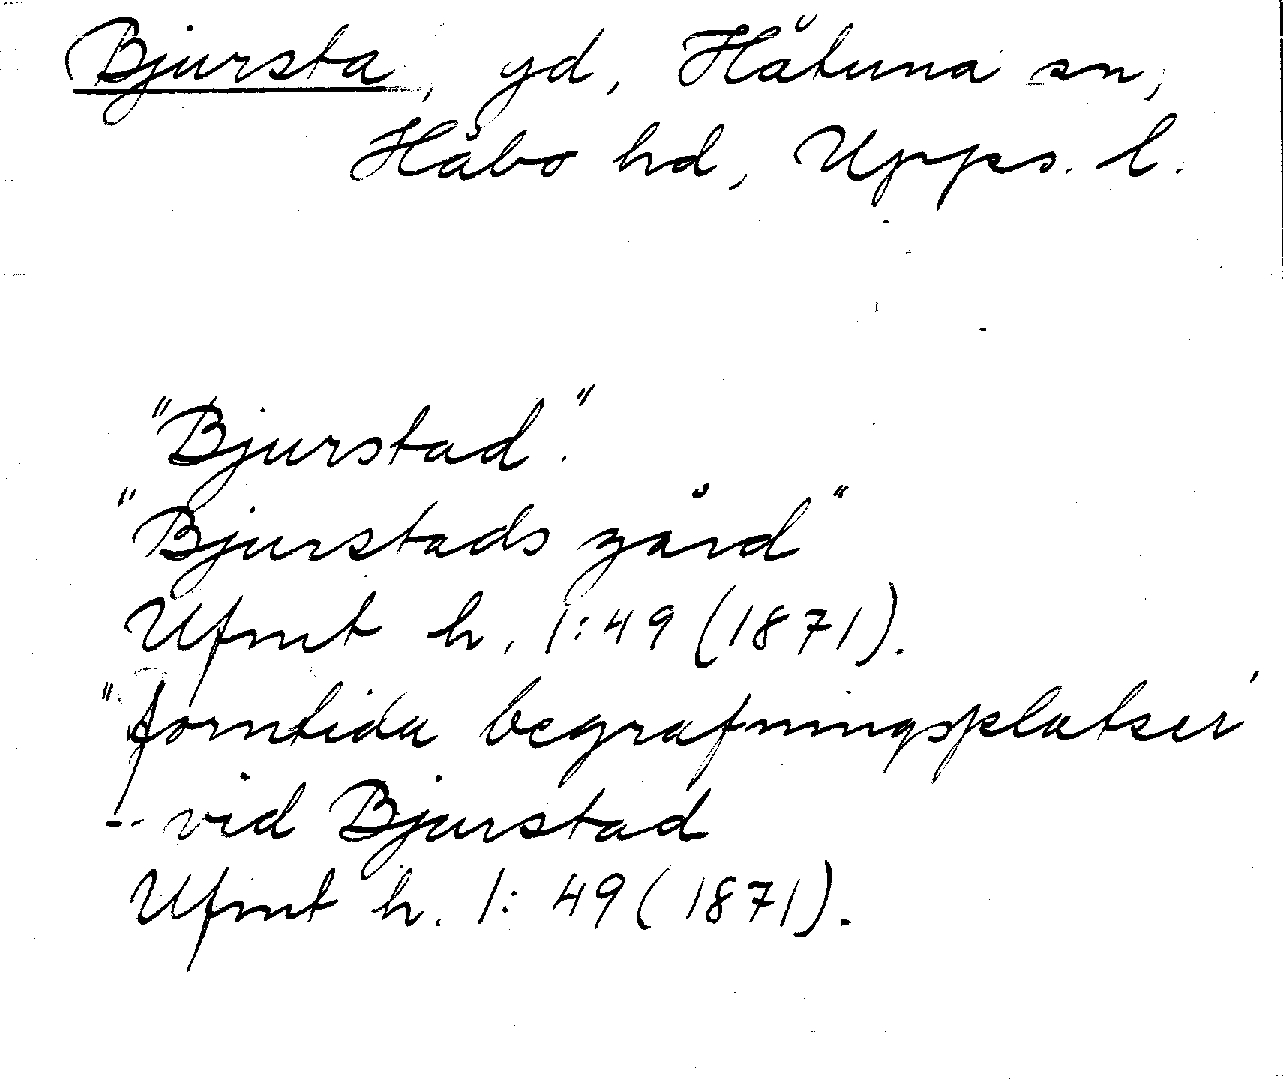 Bjursta, gd, Håtuna sn,
Håbo hd, Upps. l.
"Bjurstad".
"Bjurstads gård"
Ufmt h. 1:49 (1871).
"forntida begrafningsplatser"
- vid Bjurstad
Ufmt h. 1: 49 (1871).